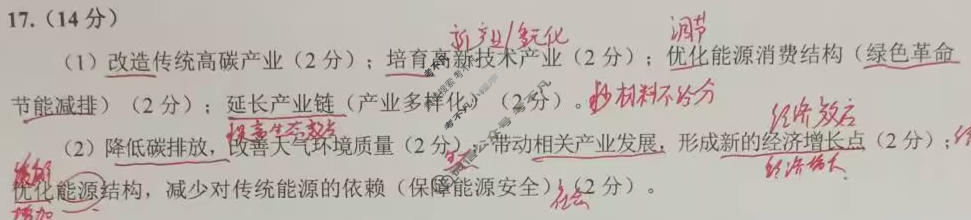 17.（14分）
新产业/多元化 调节
（1）改造传统高碳产业（2分）；培育高新技术产业（2分）；优化能源消费结构（绿色革命
节能减排）（2分）；延长产业链（产业多样化）（2分）。抄材料不给分
提高生态效益 经济效应
（2）降低碳排放，改善大气环境质量（2分）；带动相关产业发展，形成新的经济增长点（2分）；
经济增长
优化能源结构，减少对传统能源的依赖（保障能源安全）（2分）。
社会
增加